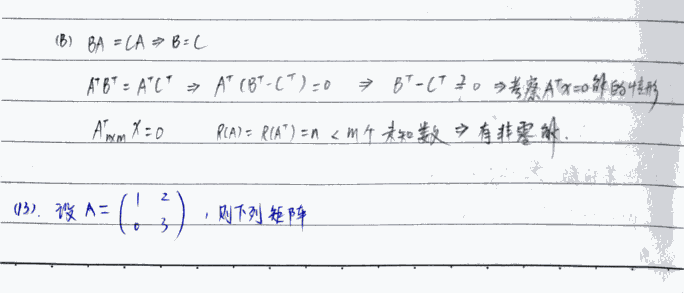 (B) BA = CA ⇒ B = C
AᵀBᵀ = AᵀCᵀ ⇒ Aᵀ(Bᵀ-Cᵀ) = 0 ⇒ Bᵀ-Cᵀ ?= 0 ⇒ 考察Aᵀx=0解的情形
Aᵀₙₓₘ x = 0 R(A) = R(Aᵀ) = n < m个未知数 ⇒ 有非零解.
(13). 设 A = (1 2 0 3), 则下列矩阵